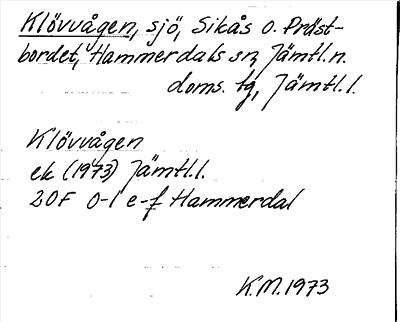 Klövvågen, sjö, Sikås o. Präst-
bordet, Hammerdals sn, Jämtl. n.
doms. tg, Jämtl. l.
Klövvågen
ek (1973) Jämtl. l.
20F 0-1 e-f Hammerdal
K.M. 1973